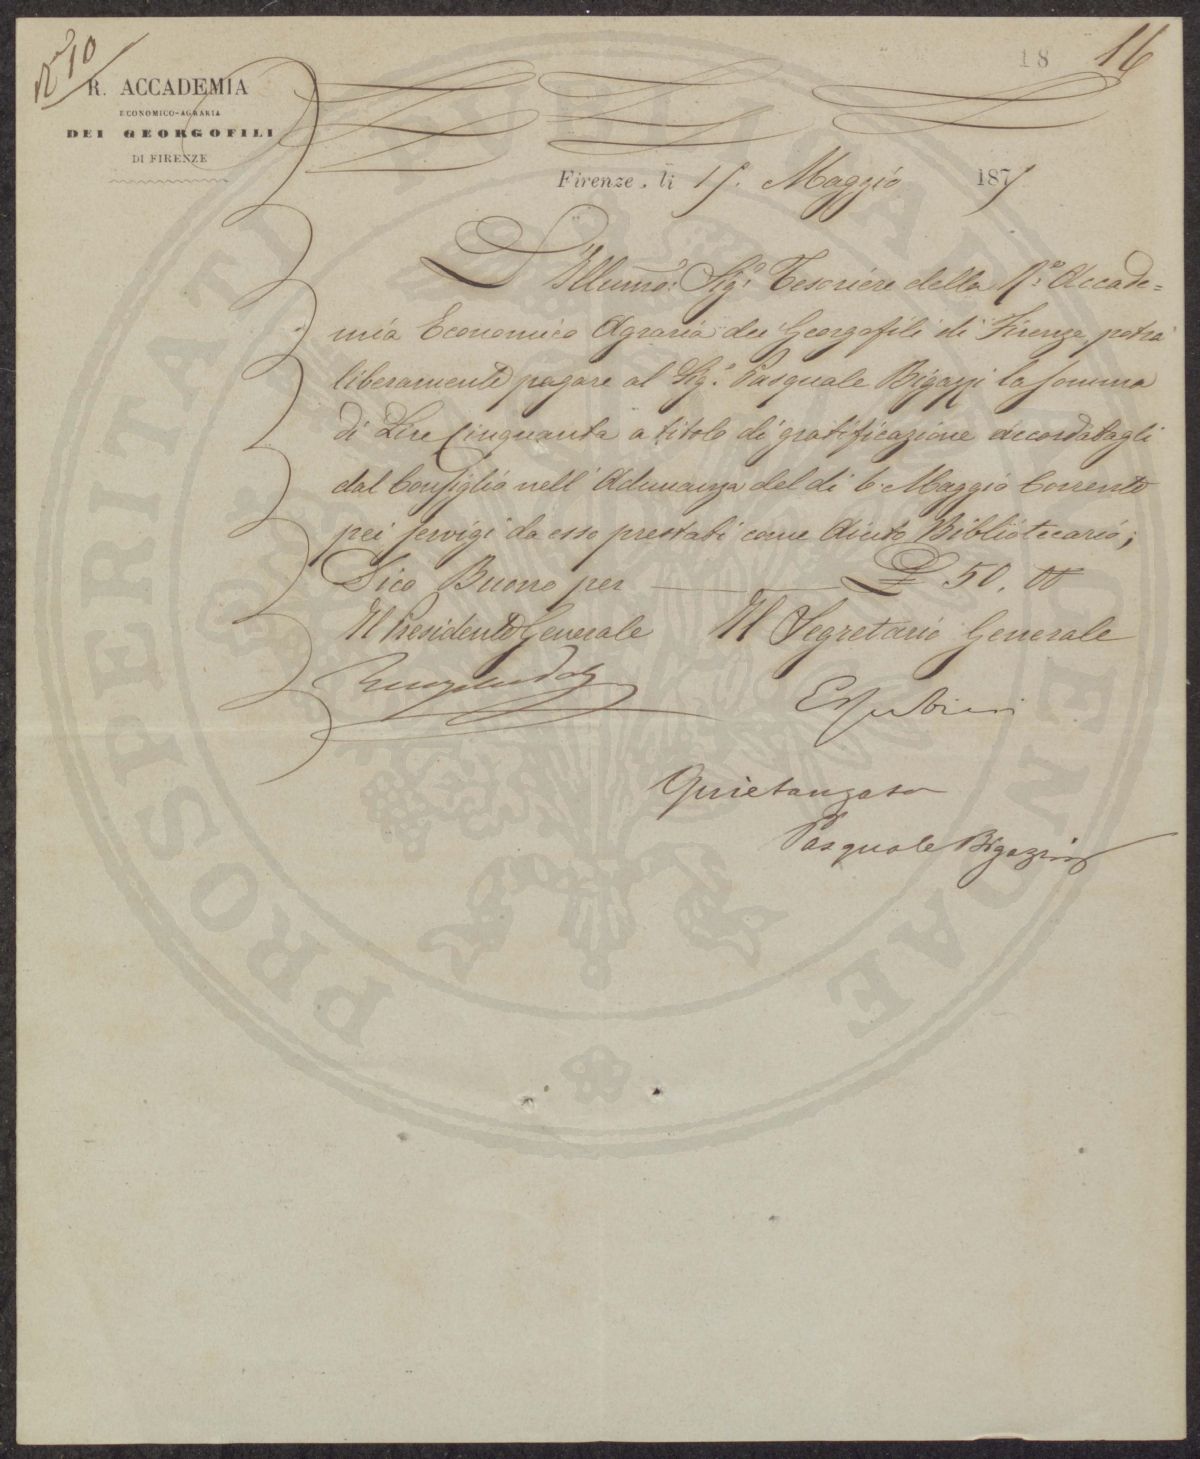 N.º 10
18 16
R. ACCADEMIA
ECONOMICO-AGRARIA
DEI GEORGOFILI
DI FIRENZE
Firenze, li 15. Maggio 1875
L'Illumo: Sigr. Tesoriere della R.a Accade=
mia Economico Agraria dei Georgofili di Firenze, potrà
liberamente pagare al Sigr. Pasquale Bigazzi la somma
di Lire Cinquanta a titolo di gratificazione accordatagli
dal Consiglio nell' Adunanza del dì 6. Maggio Corrente
pei servigi da esso prestati come Aiuto Bibliotecario;
Dico Buono per £ 50. 00
Il Presidente Generale Il Segretario Generale
Quietanzato
Pasquale Bigazzi
PROSPERITATI PUBLICAE AUGENDAE